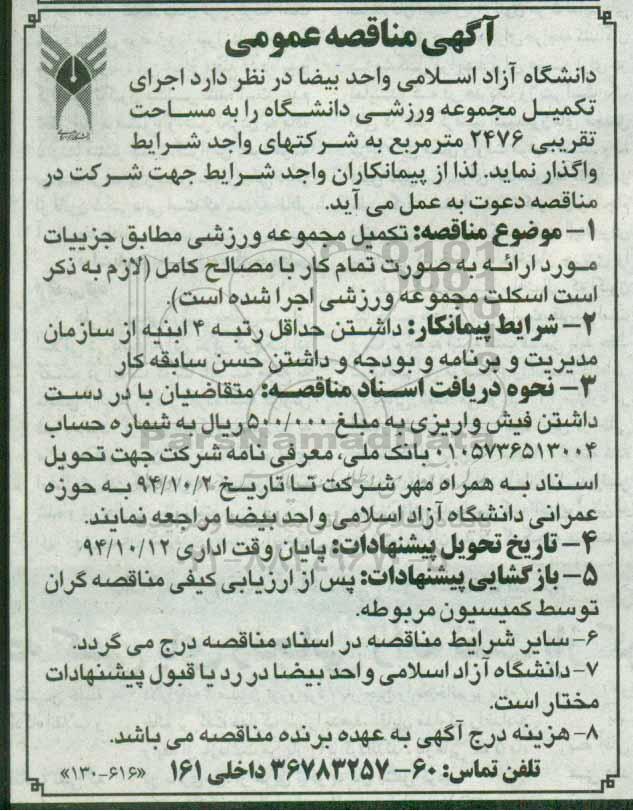 آگهی مناقصه عمومی
دانشگاه آزاد اسلامی واحد بیضا در نظر دارد اجرای
تکمیل مجموعه ورزشی دانشگاه را به مساحت
تقریبی ۲۴۷۶ مترمربع به شرکتهای واجد شرایط
واگذار نماید. لذا از پیمانکاران واجد شرایط جهت شرکت در
مناقصه دعوت به عمل می آید.
۱- موضوع مناقصه: تکمیل مجموعه ورزشی مطابق جزییات
مورد ارائه به صورت تمام کار با مصالح کامل (لازم به ذکر
است اسکلت مجموعه ورزشی اجرا شده است).
۲- شرایط پیمانکار: داشتن حداقل رتبه ۴ ابنیه از سازمان
مدیریت و برنامه و بودجه و داشتن حسن سابقه کار
۳- نحوه دریافت اسناد مناقصه: متقاضیان با در دست
داشتن فیش واریزی به مبلغ ۵۰۰/۰۰۰ ریال به شماره حساب
۰۱۰۵۷۳۶۵۱۳۰۰۴ بانک ملی، معرفی نامه شرکت جهت تحویل
اسناد به همراه مهر شرکت تا تاریخ ۹۴/۱۰/۲ به حوزه
عمرانی دانشگاه آزاد اسلامی واحد بیضا مراجعه نمایند.
۴- تاریخ تحویل پیشنهادات: پایان وقت اداری ۹۴/۱۰/۱۲
۵- بازگشایی پیشنهادات: پس از ارزیابی کیفی مناقصه گران
توسط کمیسیون مربوطه.
۶- سایر شرایط مناقصه در اسناد مناقصه درج می گردد.
۷- دانشگاه آزاد اسلامی واحد بیضا در رد یا قبول پیشنهادات
مختار است.
۸- هزینه درج آگهی به عهده برنده مناقصه می باشد.
تلفن تماس: ۶۰- ۳۶۷۸۳۲۵۷ داخلی ۱۶۱
«۱۳۰-۶۱۶»
ParsNamadData